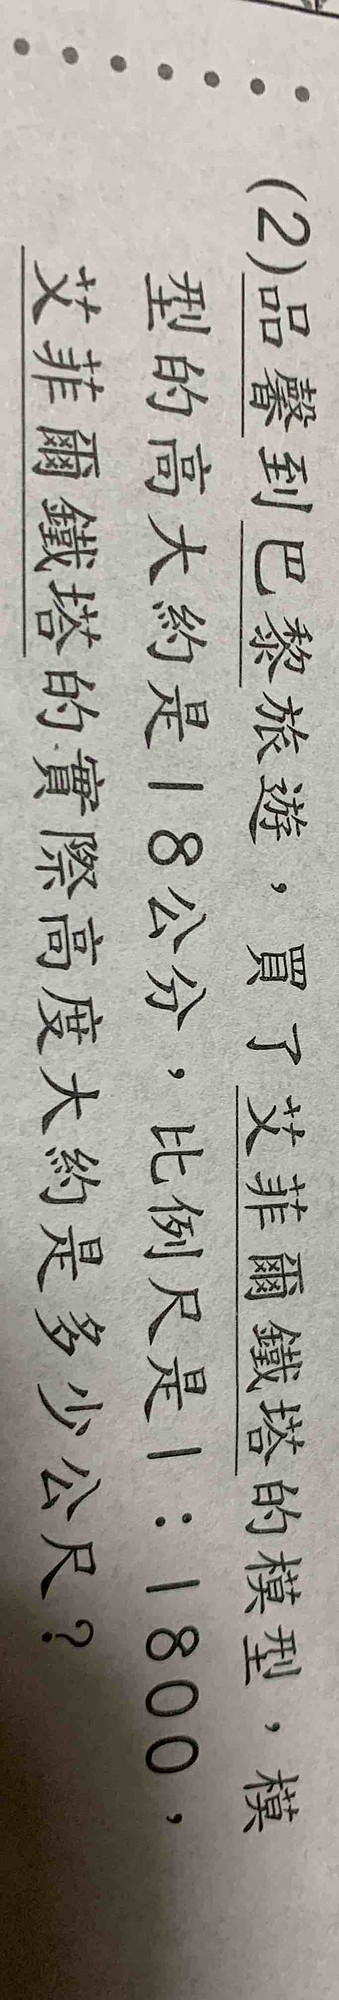 (2)品馨到巴黎旅遊，買了艾菲爾鐵塔的模型，模
型的高大約是18公分，比例尺是1：1800，
艾菲爾鐵塔的實際高度大約是多少公尺？